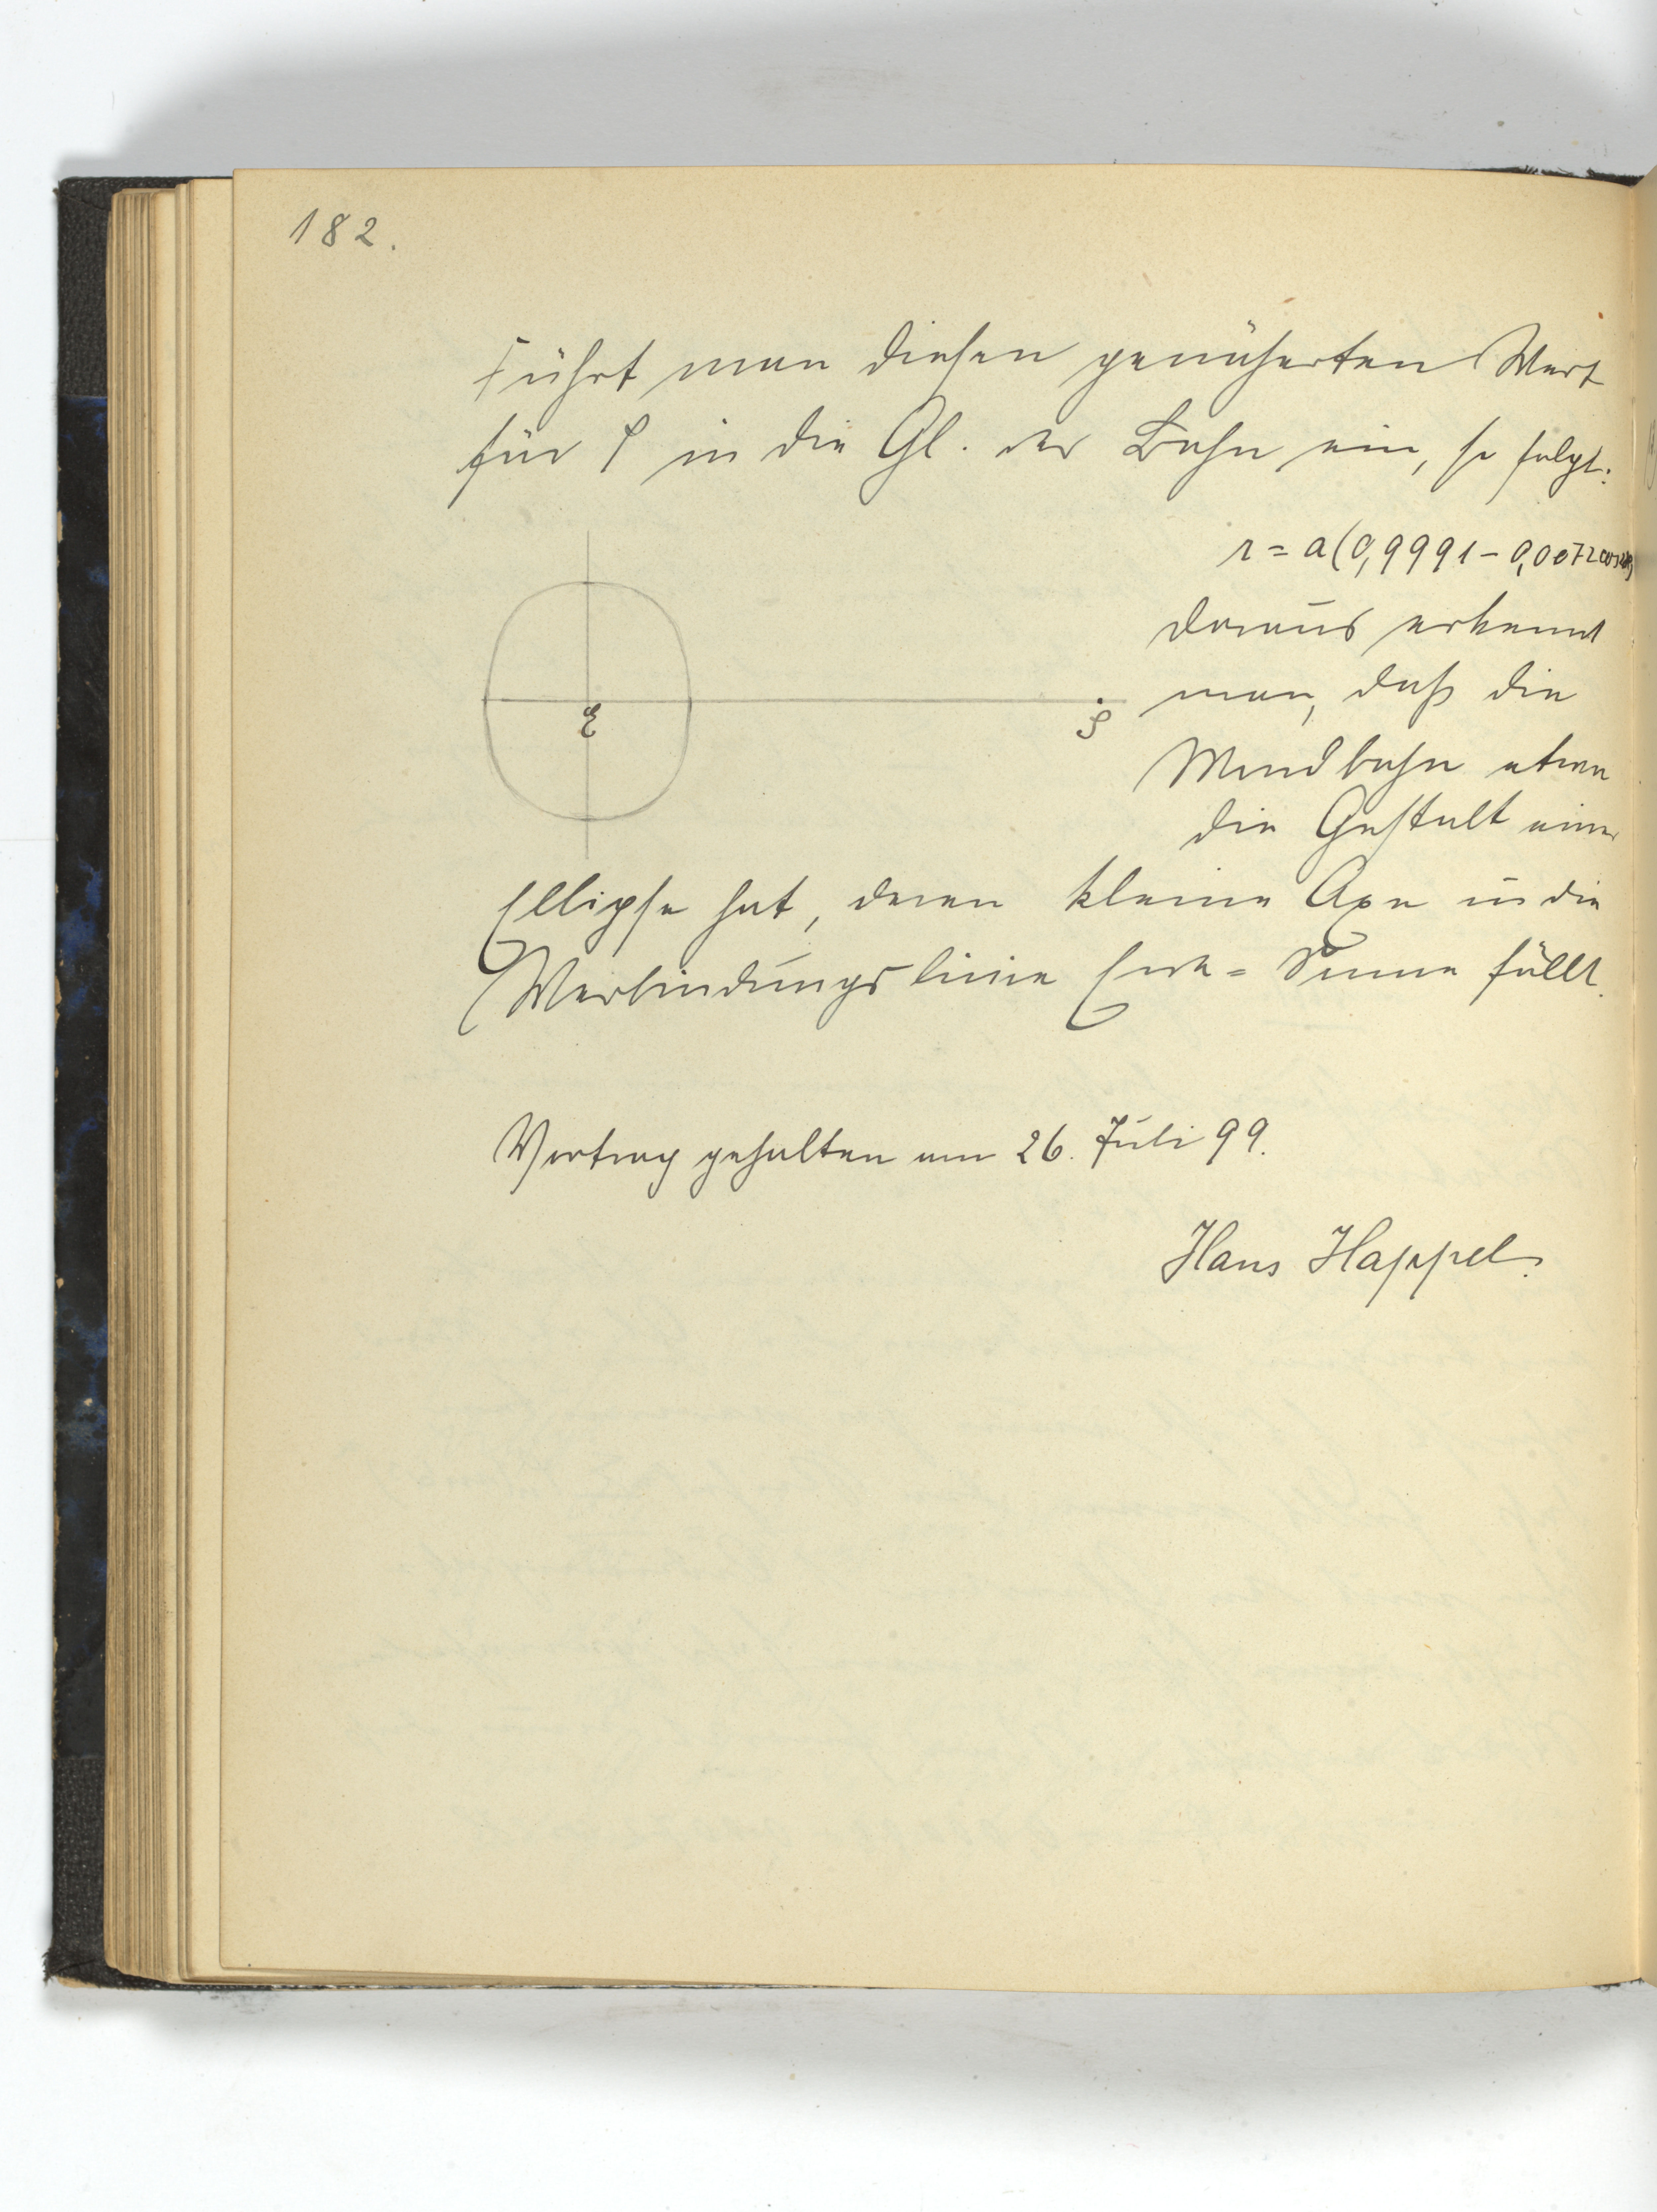 182.
Führt man diesen genäherten Wert
für ρ in die Gl. der Bahn ein, so folgt:
r = a(0,9991 - 0,0072 cos 2φ)
daraus erkennt
E
S
man, daß die
Mondbahn etwa
die Gestalt einer
Ellipse hat, deren kleine Axe in die
Verbindungslinie Erde = Sonne fällt.
Vortrag gehalten am 26. Juli 99.
Hans Happel.